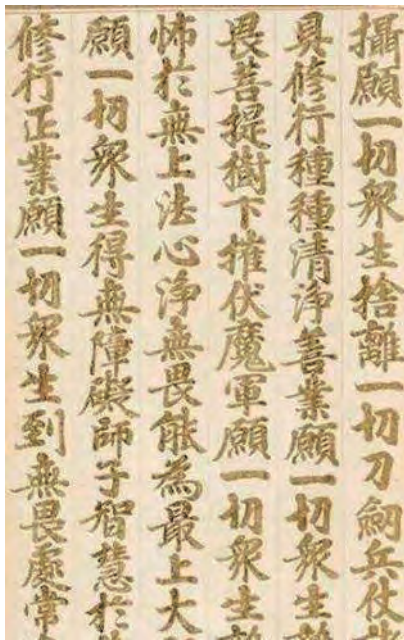 攝願一切衆生捨離一切刀劒兵仗
具修行種種清淨善業願一切衆生
畏菩提樹下摧伏魔軍願一切衆生
怖於無上法心淨無畏能為最上大
願一切衆生得無障礙師子智慧於
修行正業願一切衆生到無畏處常